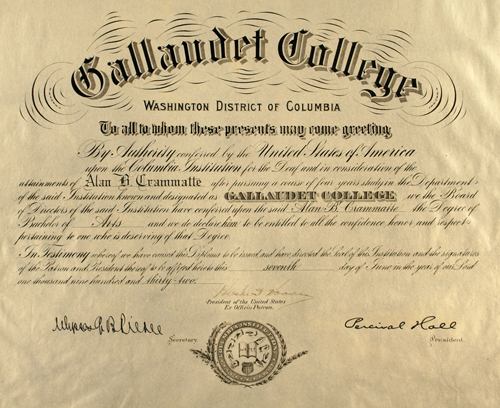 Gallaudet College
Washington District of Columbia
To all to whom these presents may come greeting
By Authority conferred by the United States of America
upon the Columbia Institution for the Deaf and in consideration of the
attainments of Alan B. Crammatte after pursuing a course of four years study in the Department
of the said Institution known and designated as GALLAUDET COLLEGE we the Board
of Directors of the said Institution have conferred upon the said Alan B. Crammatte the Degree of
Bachelor of Arts and we do declare him to be entitled to all the confidence honor and respect
pertaining to one who is deserving of that Degree
In Testimony whereof we have caused this Diploma to be issued and have directed the Seal of this Institution and the signatures
of the Patron and President thereof to be affixed hereto this seventh day of June in the year of our Lord
one thousand nine hundred and thirty-two
President of the United States
Ex Officio Patron.
Percival Hall
Secretary.
President.